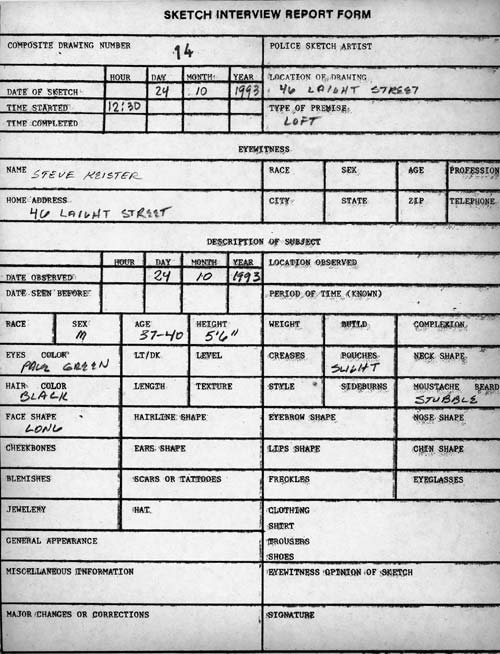 SKETCH INTERVIEW REPORT FORM
COMPOSITE DRAWING NUMBER 14 POLICE SKETCH ARTIST
HOUR DAY MONTH YEAR LOCATION OF DRAWING
DATE OF SKETCH 24 10 1993 46 LAIGHT STREET
TIME STARTED 12:30 TYPE OF PREMISE
TIME COMPLETED LOFT
EYEWITNESS
NAME STEVE KEISTER RACE SEX AGE PROFESSION
HOME ADDRESS CITY STATE ZIP TELEPHONE
46 LAIGHT STREET
DESCRIPTION OF SUBJECT
HOUR DAY MONTH YEAR LOCATION OBSERVED
DATE OBSERVED 24 10 1993
DATE SEEN BEFORE PERIOD OF TIME (KNOWN)
RACE SEX AGE HEIGHT WEIGHT BUILD COMPLEXION
M 37-40 5'6"
EYES COLOR LT/DK LEVEL CREASES POUCHES NECK SHAPE
PALE GREEN SLIGHT
HAIR COLOR LENGTH TEXTURE STYLE SIDEBURNS MOUSTACHE BEARD
BLACK STUBBLE
FACE SHAPE HAIRLINE SHAPE EYEBROW SHAPE NOSE SHAPE
LONG
CHEEKBONES EARS SHAPE LIPS SHAPE CHIN SHAPE
BLEMISHES SCARS OR TATTOOES FRECKLES EYEGLASSES
JEWELERY HAT CLOTHING
SHIRT
GENERAL APPEARANCE TROUSERS
SHOES
MISCELLANEOUS INFORMATION EYEWITNESS OPINION OF SKETCH
MAJOR CHANGES OR CORRECTIONS SIGNATURE